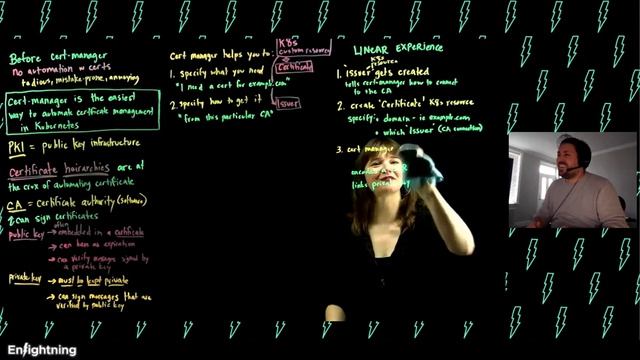 Before cert-manager
no automation w certs
tedious, mistake-prone, annoying
Cert-manager is the easiest
way to automate certificate management
in Kubernetes
PKI = public key infrastructure
Certificate hierarchies are at
the crux of automating certificate
CA = Certificate authority (software)
can sign certificates
public key → often embedded in a certificate
→ can have an expiration
→ can verify messages signed by
a private key
private key → must be kept private
→ can sign messages that are
verified by public key
Cert manager helps you to:
K8s
custom resource
1. specify what you need
Certificate
"I need a cert for example.com"
2. specify how to get it
Issuer
"from this particular CA"
LINEAR EXPERIENCE
K8s
resource
1. issuer gets created
tells cert-manager how to connect
to the CA
2. create 'Certificate' K8s resource
specify: domain - ie example.com
which Issuer (CA connection)
3. cert manager
links private key
Enlightning